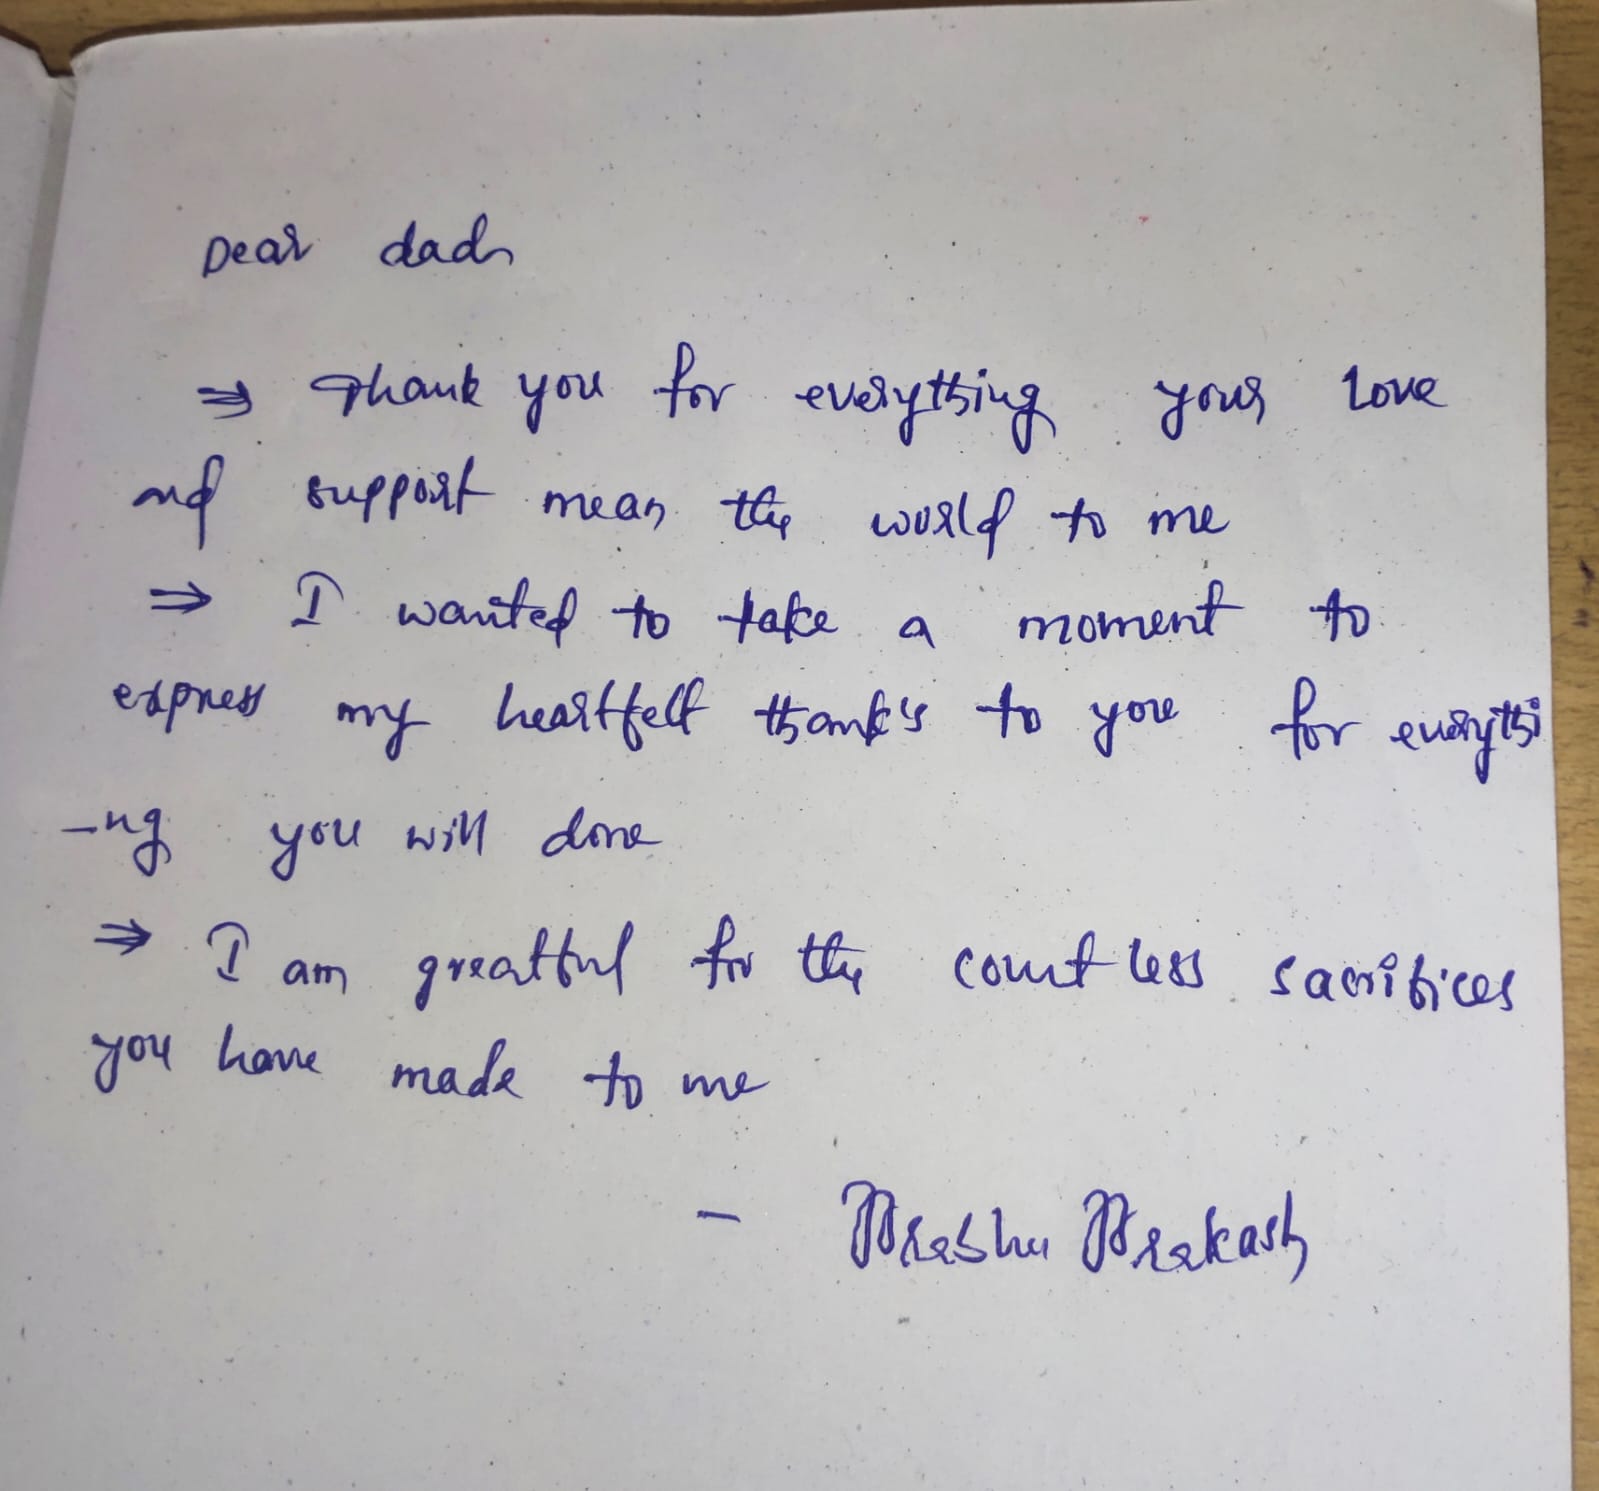 Dear dad,
⇒ Thank you for everything your love
and support mean the world to me
⇒ I wanted to take a moment to
express my heartfelt thank's to you for everythi
-ng you will done
⇒ I am greatful for the countless sacrifices
you have made to me
- Prabhu Prakash